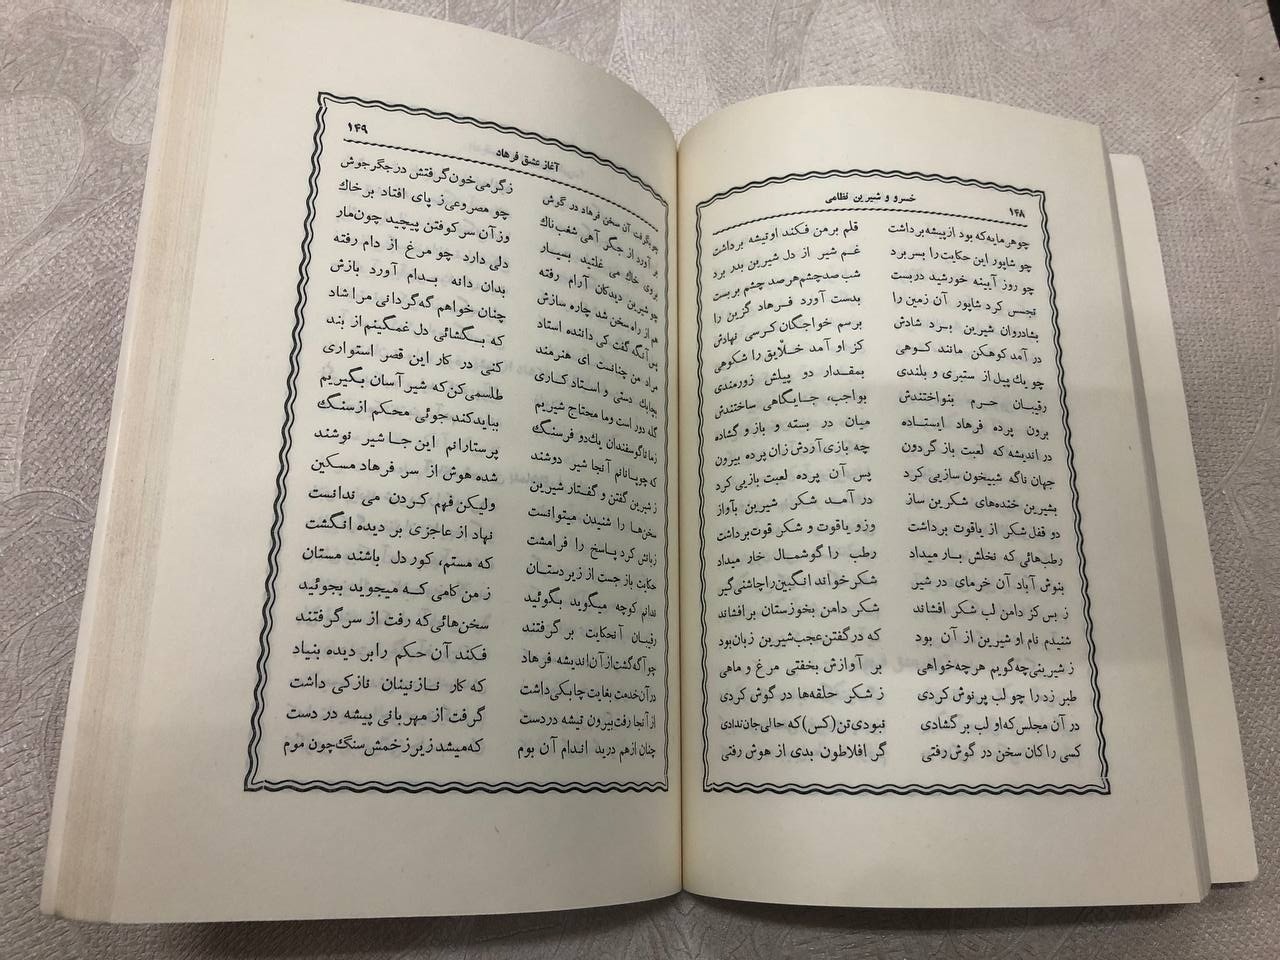 خسرو و شیرین نظامی
۱۴۸
چو هر مایه که بود از پیشه برداشت قلم بر من فکند او تیشه برداشت
چو شاپور این حکایت را بسر برد غم شیر از دل شیرین بدر برد
چو روز آیینه خورشید در بست شب صد چشم هر صد چشم بر بست
تجسس کرد شاپور آن زمین را بدست آورد فرهاد گزین را
بشادروان شیرین برد شادش برسم خواجگان کرسی نهادش
در آمد کوهکن مانند کوهی کز او آمد خلایق را شکوهی
چو یك پیل از ستبری و بلندی بمقدار دو پیلش زورمندی
رقیبان حرم بنواختندش بواجب، جایگاهی ساختندش
برون پرده فرهاد ایستاده میان در بسته و بازو گشاده
در اندیشه که لعبت باز گردون چه بازی آردش زان پرده بیرون
جهان ناگه شبیخون سازیی کرد پس آن پرده لعبت بازیی کرد
بشیرین خنده‌های شکرین ساز در آمد شکر شیرین بآواز
دو قفل شکر از یاقوت برداشت وزو یاقوت و شکر قوت برداشت
رطب‌هائی که نخلش بار میداد رطب را گوشمال خار میداد
بنوش آباد آن خرمای در شیر شکر خواند انگبین را چاشنی‌گیر
ز بس کز دامن لب شکر افشاند شکر دامن بخوزستان بر افشاند
شنیدم نام او شیرین از آن بود که در گفتن عجب شیرین زبان بود
ز شیرینی چه گویم هر چه خواهی بر آوازش بخفتی مرغ و ماهی
طبر زد را چو لب پر نوش کردی ز شکر حلقه‌ها در گوش کردی
در آن مجلس که او لب بر گشادی نبودی تن (کس) که حالی جان ندادی
کسی را کان سخن در گوش رفتی گر افلاطون بدی از هوش رفتی
آغاز عشق فرهاد
۱۴۹
چو بگرفت آن سخن فرهاد در گوش ز گرمی خون گرفتش در جگر جوش
بر آورد از جگر آهی شغب‌ناك چو مصروعی ز پای افتاد بر خاك
بروی خاك می غلتید بسیار وز آن سر کوفتن پیچید چون مار
چو شیرین دید کان آرام رفته دلی دارد چو مرغ از دام رفته
هم از راه سخن شد چاره سازش بدان دانه بدام آورد بازش
پس آنگه گفت کی داننده استاد چنان خواهم که گردانی مرا شاد
مراد من چنانست ای هنرمند که بگشائی دل غمگینم از بند
بچابك دستی و استاد کاری کنی در کار این قصر استواری
گله دور است و ما محتاج شیریم طلسمی کن که شیر آسان بگیریم
ز ما تا گوسفندان یك دو فرسنگ بباید کند جوئی محکم از سنگ
که چوپانانم آنجا شیر دوشند پرستارانم این جا شیر نوشند
ز شیرین گفتن و گفتار شیرین شده هوش از سر فرهاد مسکین
سخن‌ها را شنیدن میتوانست ولیکن فهم کردن می ندانست
زبانش کرد پاسخ را فرامشت نهاد از عاجزی بر دیده انگشت
حکایت باز جست از زیر دستان که مستم، کور دل باشند مستان
ندانم کوچه میگوید بگوئید ز من کامی که میجوید بجوئید
رقیبان آنحکایت بر گرفتند سخن‌هائی که رفت از سر گرفتند
چو آگه گشت از آن اندیشه فرهاد فکند آن حکم را بر دیده بنیاد
در آن خدمت بغایت چابکی داشت که کار نازنینان نازکی داشت
از آنجا رفت بیرون تیشه در دست گرفت از مهربانی پیشه در دست
چنان از هم درید اندام آن بوم که میشد زیر زخمش سنگ چون موم